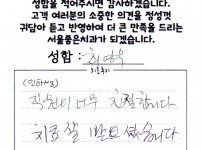 성함을 적어주시면 감사하겠습니다.
고객 여러분의 소중한 의견을 정성껏
귀담아 듣고 반영하여 더 큰 만족을 드리는
서울좋은치과가 되겠습니다.
성함 : 최영옥
직원이 너무 친절합니다
치료 잘 받고 있습니다